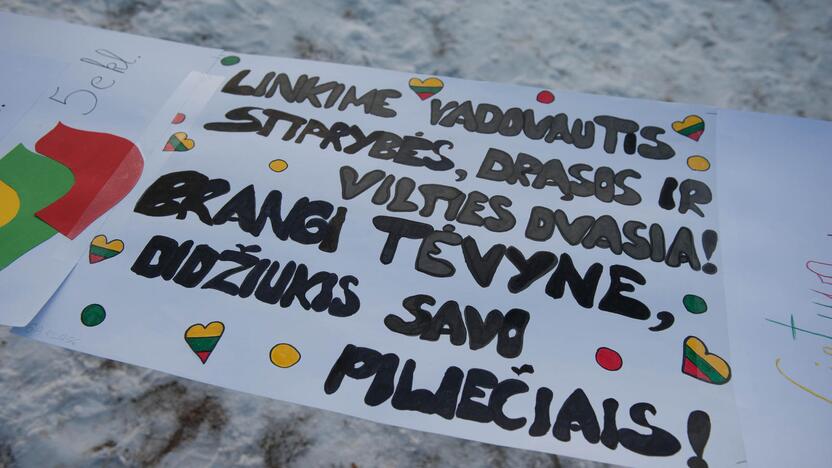 5e kl.
LINKIME VADOVAUTIS
STIPRYBĖS, DRĄSOS IR
VILTIES DVASIA!
BRANGI TĖVYNE,
DIDŽIUKIS SAVO
PILIEČIAIS!